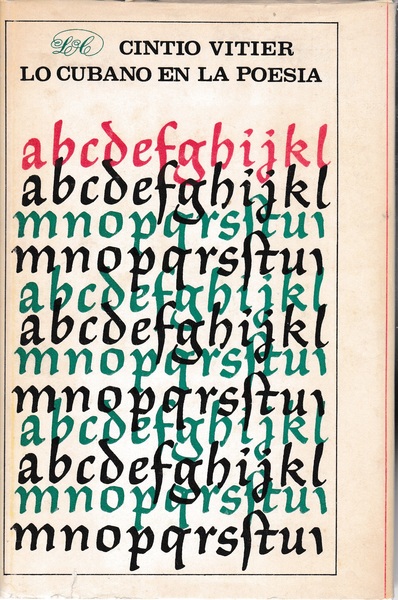 LC CINTIO VITIER
LO CUBANO EN LA POESIA
abcdefghijkl
abcdefghijkl
mnopqrsſtuı
mnopqrsſtuı
abcdefghijkl
abcdefghijkl
mnopqrsſtuı
mnopqrsſtuı
abcdefghijkl
abcdefghijkl
mnopqrsſtuı
mnopqrsſtuı